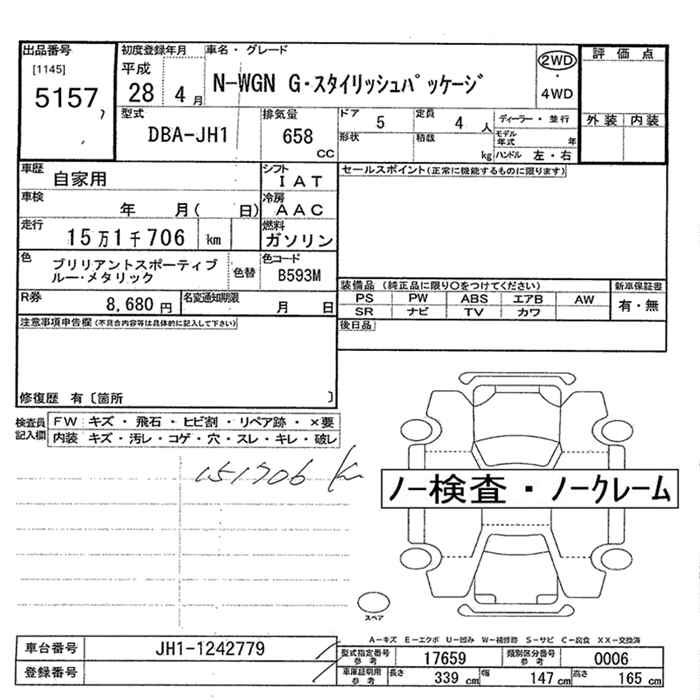 出品番号 初度登録年月 車名・グレード 評価点
[1145] 平成 N-WGN G・スタイリッシュパッケージ 2WD
5157 28 4月 ・4WD
型式 排気量 ドア 5 定員 4人 ディーラー・並行 外装 内装
DBA-JH1 658 cc 形状 積載 kg モデル年式 年
ハンドル 左・右
車歴 自家用 シフト IAT セールスポイント(正常に機能するものに限ります)
車検 年 月( 日) 冷房 AAC
走行 15万1千706 km 燃料 ガソリン
色 ブリリアントスポーティブ 色替 色コード
ルー・メタリック B593M
装備品(純正品に限り○をつけてください) 新車保証書
PS PW ABS エアB AW 有・無
SR ナビ TV カワ
R券 8,680円 名変通知期限 月 日
注意事項申告欄(不具合内容等は具体的に記入して下さい) 後日品
修復歴 有〔箇所 〕
検査員記入欄 FW キズ・飛石・ヒビ割・リペア跡・×要
内装 キズ・汚レ・コゲ・穴・スレ・キレ・破レ
151706 km
ノー検査・ノークレーム
スペア
A-キズ E-エクボ U-凹み W-補修跡 S-サビ C-腐食 XX-交換済
車台番号 JH1-1242779 型式指定番号 参考 17659 類別区分番号 参考 0006
登録番号 車庫証明用 参考 長さ 339cm 幅 147cm 高さ 165cm